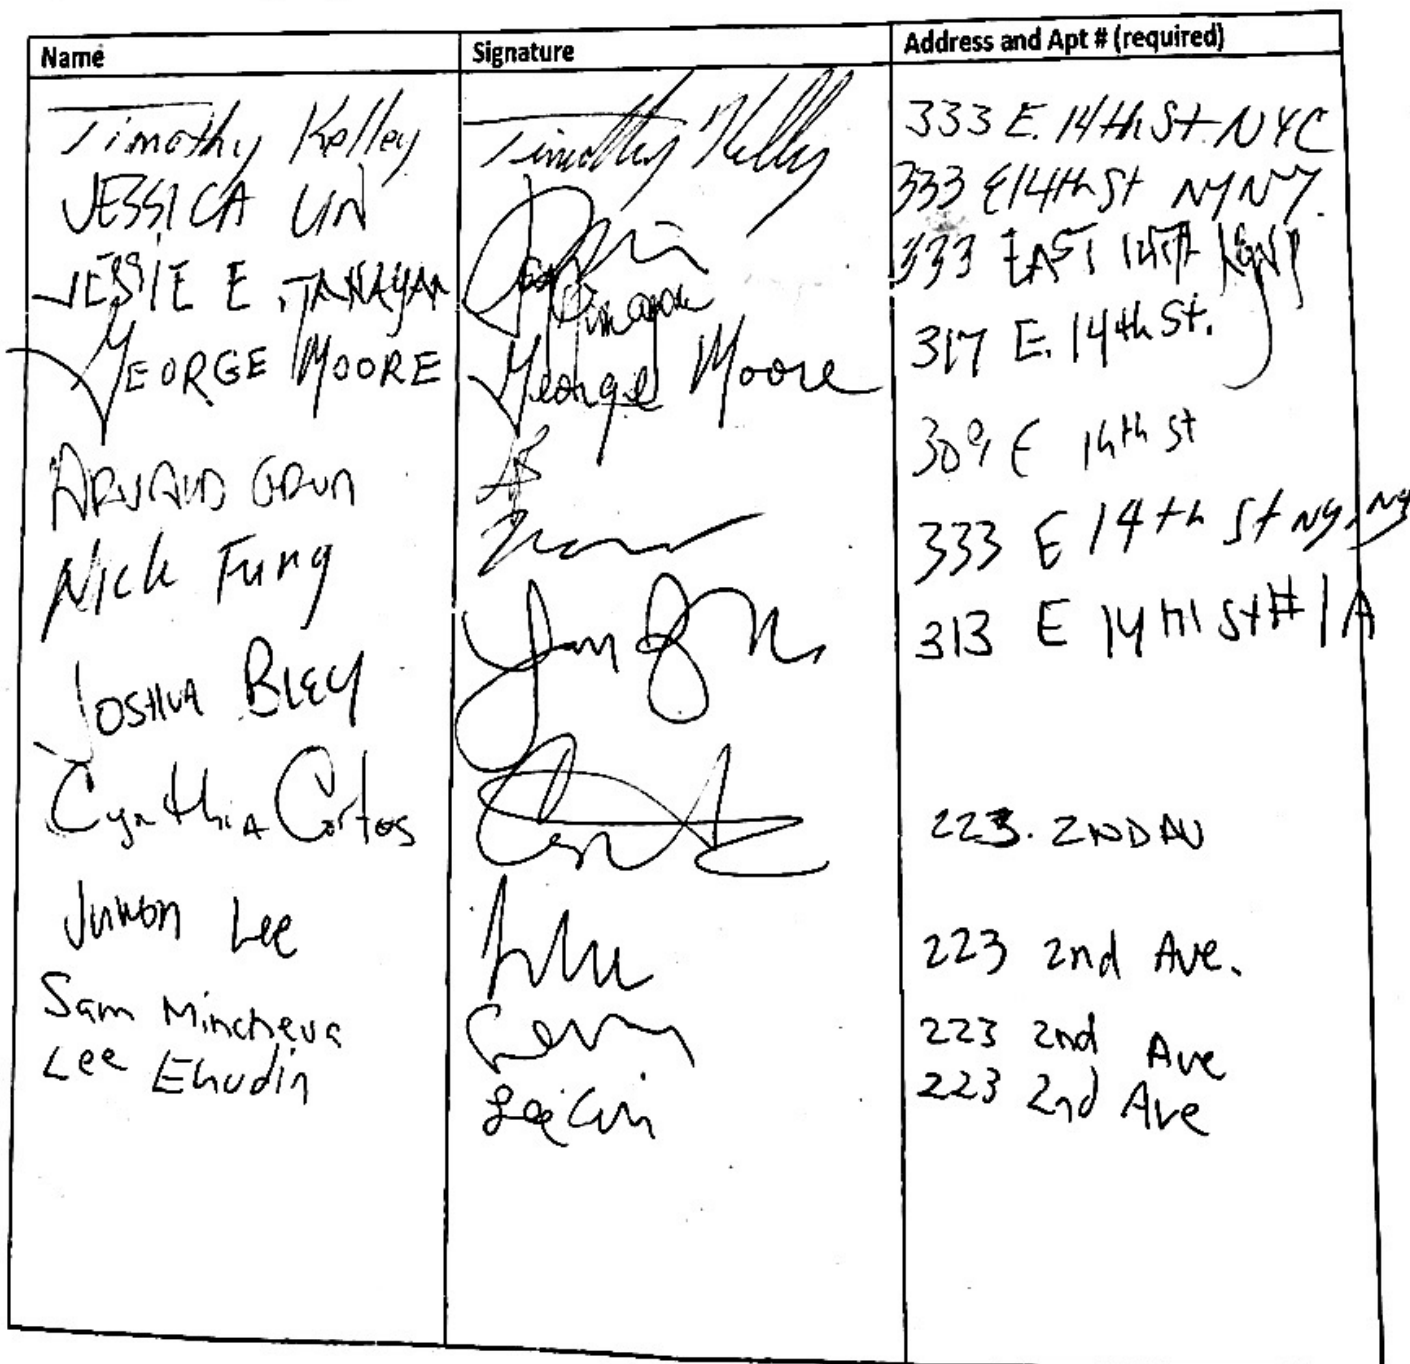 Name Signature Address and Apt # (required)
Timothy Kelley Timothy Kelley 333 E. 14th St. NYC
JESSICA LIN 333 E 14th St NY NY.
JESSIE E. 333 EAST 14TH
GEORGE MOORE George Moore 317 E. 14th St.
309 E 14th St
Nick Fung 333 E 14th St NY, NY
JOSHUA BLEY 313 E 14TH St #1A
Cynthia Cortes 223. 2ND AV
Juwon Lee 223 2nd Ave.
Sam Mincheva 223 2nd Ave
Lee Ehudin 223 2nd Ave